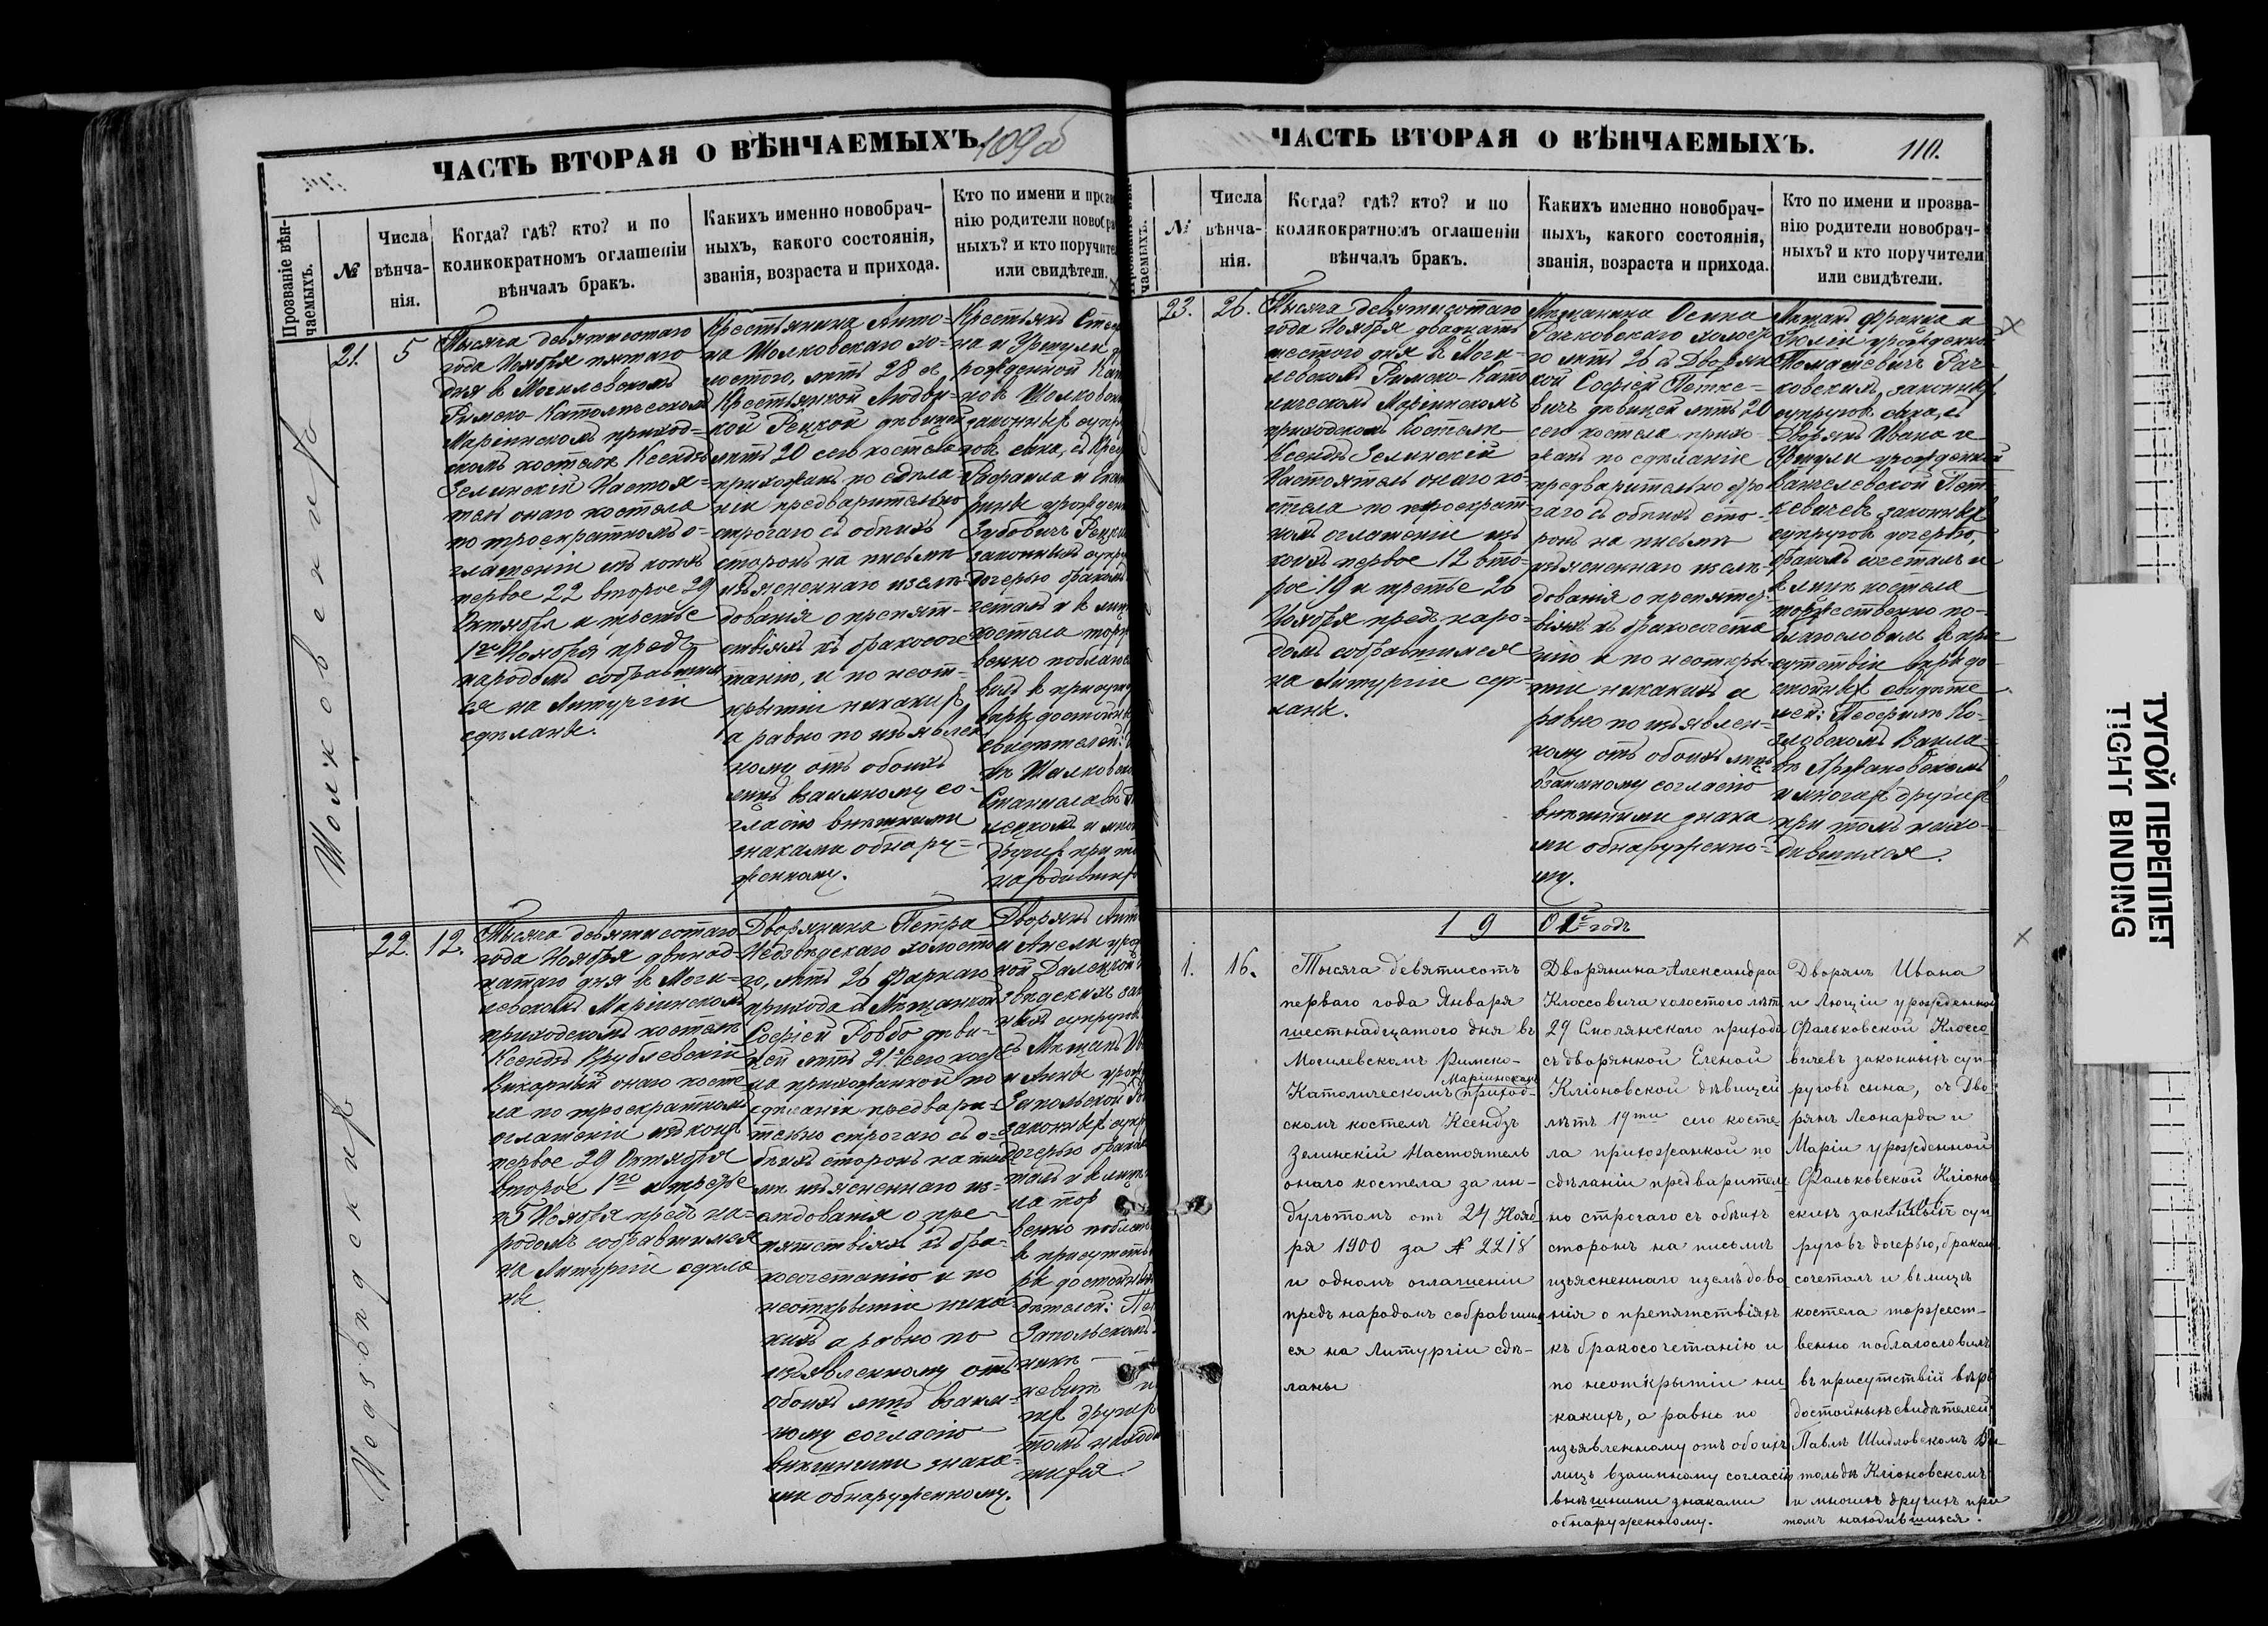 ЧАСТЬ ВТОРАЯ О ВѢНЧАЕМЫХЪ.
109об
Прозваніе вѣн-
чаемыхъ.
№
Числа
вѣнча-
нія.
Когда? гдѣ? кто? и по
коликократномъ оглашеніи
вѣнчалъ бракъ.
Какихъ именно новобрач-
ныхъ, какого состоянія,
званія, возраста и прихода.
Кто по имени и прозва
нію родители новобра
ныхъ? и кто поручите
или свидѣтели.
Шолковскихъ
21.
5
Тысяча девятисотаго
года Ноября пятаго
дня в Могилевскомъ
Римско-Католическомъ
Маріинскомъ приход-
скомъ костелѣ Ксендзъ
Зелинскій Настоя-
тель онаго костела
по троекратномъ о-
глашеніи изъ коихъ
первое 22 второе 29
Октября и третье
1го Ноября предъ
народомъ собравшим
ся на Литургіи
сдѣланы.
Крестьянина Анто-
на Шолковскаго хо-
лостого, лѣтъ 28 съ
Крестьянкой Людви-
кой Рецкой дѣвицей
лѣтъ 20 сего костела
прихожанъ по сдѣла
ніи предварительно
строгаго съ обѣихъ
сторонъ на письмѣ
изъясненнаго изслѣ-
дованія о препят-
ствіяхъ къ бракосоче
танію, и по неот-
крытіи никакихъ
а равно по изъявлен
ному отъ обоихъ
лицъ взаимному со-
гласію внѣшними
знаками обнару-
женному.
Крестьянъ Сте
на и Уршули
рожденной
новъ Шолковски
законныхъ супру
говъ сына, съ Крес
Рафаила и Екат
рины урожден
Зубовичъ Рецки
законныхъ супру
дочерью бракомъ
четалъ и в лиц
костела торж
венно поблагос
вилъ в присут
вѣрѣдостойны
свидѣтелей:
Шолковско
Станиславѣ
лецкомъ и мно
другихъ при то
находивших
Недзвѣдскихъ
22.
12.
Тысяча девятисотаго
года Ноября двенад-
цатаго дня в Моги-
левскомъ Маріинском
приходскомъ костелѣ
Ксендзъ Врублевскій
Викарный онаго косте
ла по троекратномъ
оглашеніи изъ коихъ
первое 29 Октября
второе 1го и третье
5 Ноября предъ на-
родомъ собравшимся
на Литургіи сдѣла
ны.
Дворянина Петра
Недзвѣдскаго холосто
го, лѣтъ 26 Фарнаго
прихода съ Мѣщанкой
Софіей Ровбо дѣви-
цей лѣтъ 21 сего косте
ла прихожанкой по
сдѣланіи предвари-
тельно строгаго съ о-
бѣихъ сторонъ на пись
мѣ изъясненнаго из-
слѣдованія о пре-
пятствіяхъ къ бра-
косочетанію и по
неоткрытіи ника
кихъ а равно по
изъявленному отъ
обоихъ лицъ взаим-
ному согласію
внѣшними знака-
ми обнаруженному.
Дворянъ Анто
и Анели урож
ной Далецкой
звѣдскихъ зак
ныхъ супругов
съ Мѣщанъ Ив
и Анны урож
Запольской
законныхъ супр
дочерью бракомъ
талъ и в лицѣ
ла тор
венно поблаг
в присутств
рѣ достойны
дѣтелей: Пе
Запольскомъ
никѣ
невич
гихъ другихъ
томъ находи
шихся
ЧАСТЬ ВТОРАЯ О ВѢНЧАЕМЫХЪ.
110.
чаемыхъ.
№
Числа
вѣнча-
нія.
Когда? гдѣ? кто? и по
коликократномъ оглашеніи
вѣнчалъ бракъ.
Какихъ именно новобрач-
ныхъ, какого состоянія,
званія, возраста и прихода.
Кто по имени и прозва-
нію родители новобрач-
ныхъ? и кто поручители
или свидѣтели.
23.
26.
Тысяча девятисотаго
года Ноября двадцать
шестого дня в Моги-
левскомъ Римско-Като
лическомъ Маріинскомъ
приходскомъ Костелѣ
Ксендзъ Зелинскій
Настоятель онаго ко-
стела по троекрат
номъ оглашеніи изъ
коихъ первое 12 вто-
рое 19 и третье 26
Ноября предъ наро-
домъ собравшимся
на Литургіи сдѣ-
ланы.
Мѣщанина Осипа
Рачковскаго холост
го лѣтъ 26 съ Дворян
кой Софіей Петке-
вичъ дѣвицей лѣтъ 20
сего костела прихо-
жанъ по сдѣланіи
предварительно стро
гаго съ обѣихъ сто-
ронъ на письмѣ
изъясненнаго изслѣ-
дованія о препятст-
віяхъ къ бракосочета
нію и по неоткры-
тіи никакихъ а
равно по изъявлен-
ному отъ обоихъ лицъ
взаимному согласію
внѣшними знака
ми обнаруженно-
му.
Мѣщанъ Франца и
Юліи урожденной
Томашевичъ Рач-
ковскихъ законныхъ
супруговъ сына, съ
Дворянъ Ивана и
Уршули урожденной
Вангелевской Пет-
кевичевъ законныхъ
супруговъ дочерью,
бракомъ сочеталъ и
в лицѣ костела
торжественно по-
благословилъ в при-
сутствіи вѣрѣдо-
стойныхъ свидѣте
лей: Теофилѣ Ко-
зловскомъ Вацла-
вѣ Хржановскомъ
и многихъ другихъ
при томъ нахо-
дившихся.
19 01й годъ
1.
16.
Тысяча девятисотъ
перваго года Января
шестнадцатого дня въ
Могилевскомъ Римско-
Католическомъ Маріинскомъ приход-
скомъ костелѣ Ксендзъ
Зелинскій Настоятель
онаго костела за ин-
дультомъ отъ 24 Нояб
ря 1900 за № 2218
и одномъ оглашеніи
предъ народомъ собравшим
ся на Литургіи сдѣ-
ланы
Дворянина Александра
Клоссовича холостого лѣтъ
29 Смолянскаго прихода
съ дворянкой Еленой
Кліоновской дѣвицей
лѣтъ 19ти сего косте-
ла прихожанкой по
сдѣланіи предварител
но строгаго съ обѣихъ
сторонъ на письмѣ
изъясненнаго изслѣдова
нія о препятствіяхъ
къ бракосочетанію и
по неоткрытіи ни-
какихъ, а равно по
изъявленному отъ обоихъ
лицъ взаимному согласію
внѣшними знаками
обнаруженному.
Дворянъ Ивана
и Люціи урожденной
Фальковской Клоссо
вичевъ законныхъ суп-
руговъ сына, съ Дво-
рянъ Леонарда и
Маріи урожденной
Фальковской Кліонов
скихъ законныхъ суп
руговъ дочерью, бракомъ
сочеталъ и въ лицѣ
костела торжест-
венно поблагословилъ
въ присутствіи вѣрѣ
достойныхъ свидѣтелей
Павлѣ Шидловскомъ Ви-
тольдѣ Кліоновскомъ
и многихъ другихъ при
томъ находившихся.
ТУГОЙ ПЕРЕПЛЕТ
TIGHT BINDING